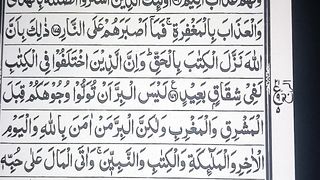 وَالْعَذَابَ بِالْمَغْفِرَةِ ۚ فَمَآ اَصْبَرَهُمْ عَلَى النَّارِ ﴿۱۷۵﴾ ذٰلِكَ بِاَنَّ
اللّٰهَ نَزَّلَ الْكِتٰبَ بِالْحَقِّ ؕ وَاِنَّ الَّذِيْنَ اخْتَلَفُوْا فِى الْكِتٰبِ
لَفِىْ شِقَاقٍۭ بَعِيْدٍ ﴿۱۷۶﴾ لَيْسَ الْبِرَّ اَنْ تُوَلُّوْا وُجُوْهَكُمْ قِبَلَ
الْمَشْرِقِ وَالْمَغْرِبِ وَلٰكِنَّ الْبِرَّ مَنْ اٰمَنَ بِاللّٰهِ وَالْيَوْمِ
الْاٰخِرِ وَالْمَلٰٓئِكَةِ وَالْكِتٰبِ وَالنَّبِيّٖنَ ۚ وَاٰتَى الْمَالَ عَلٰى حُبِّهٖ